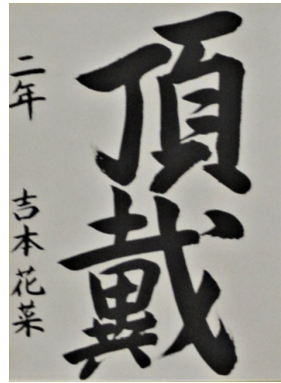 頂戴
二年 吉本花菜